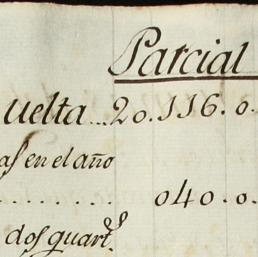 Parcial
uelta...20.116.0.
as en el año
........ 040.0.
dos quart.s